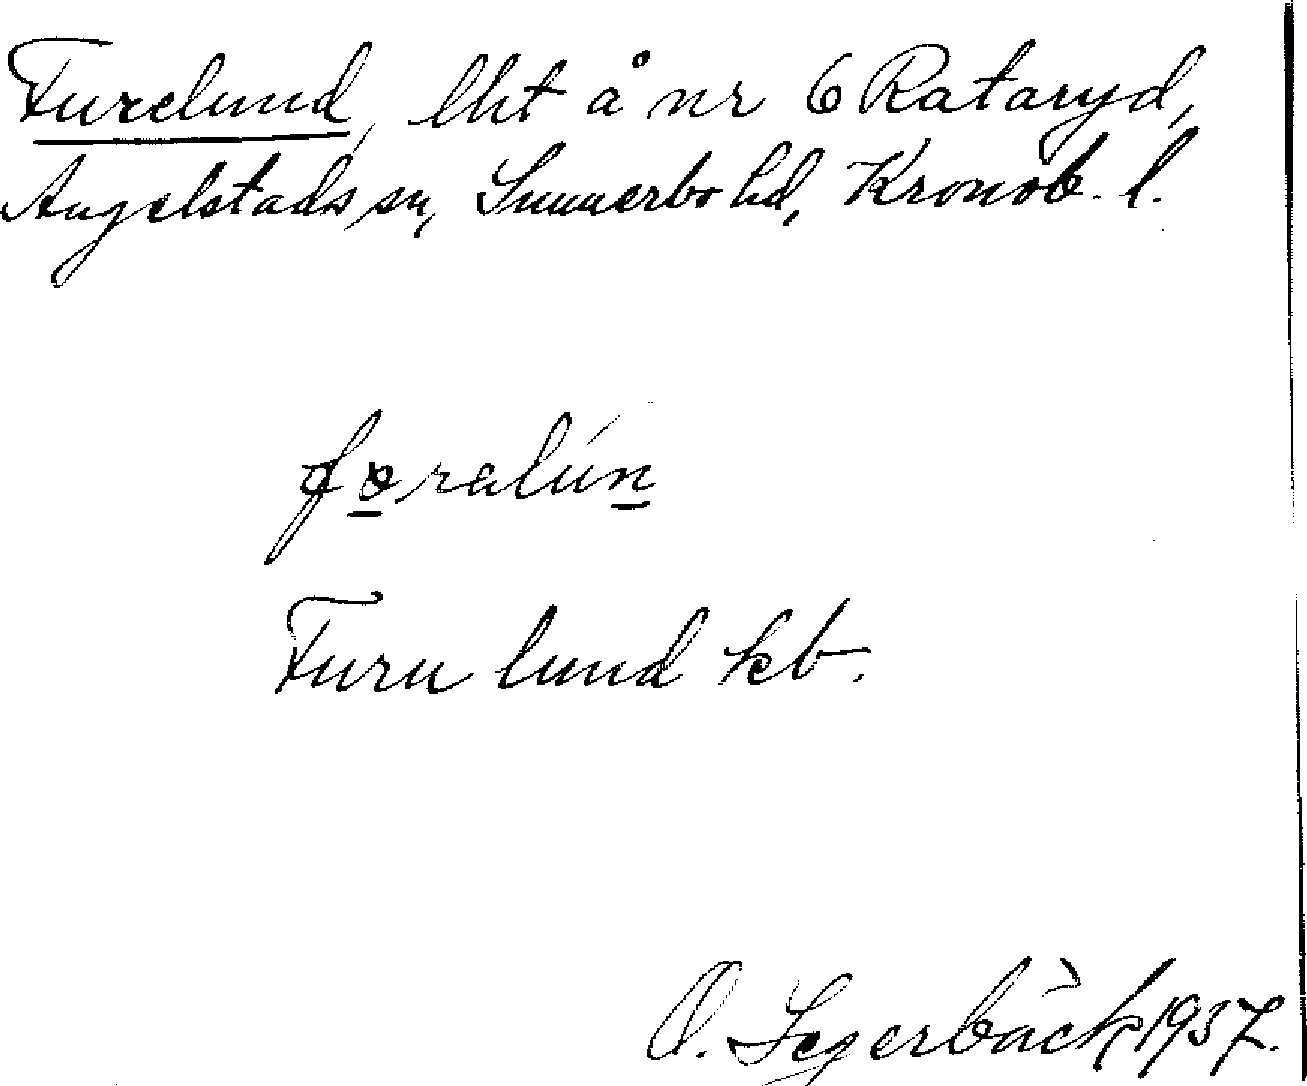 Furelund, lht å nr 6 Rataryd,
Angelstads sn, Sunnerbo hd, Kronob. l.
føralún
Furu lund kb.
O. Segerbäck 1937.